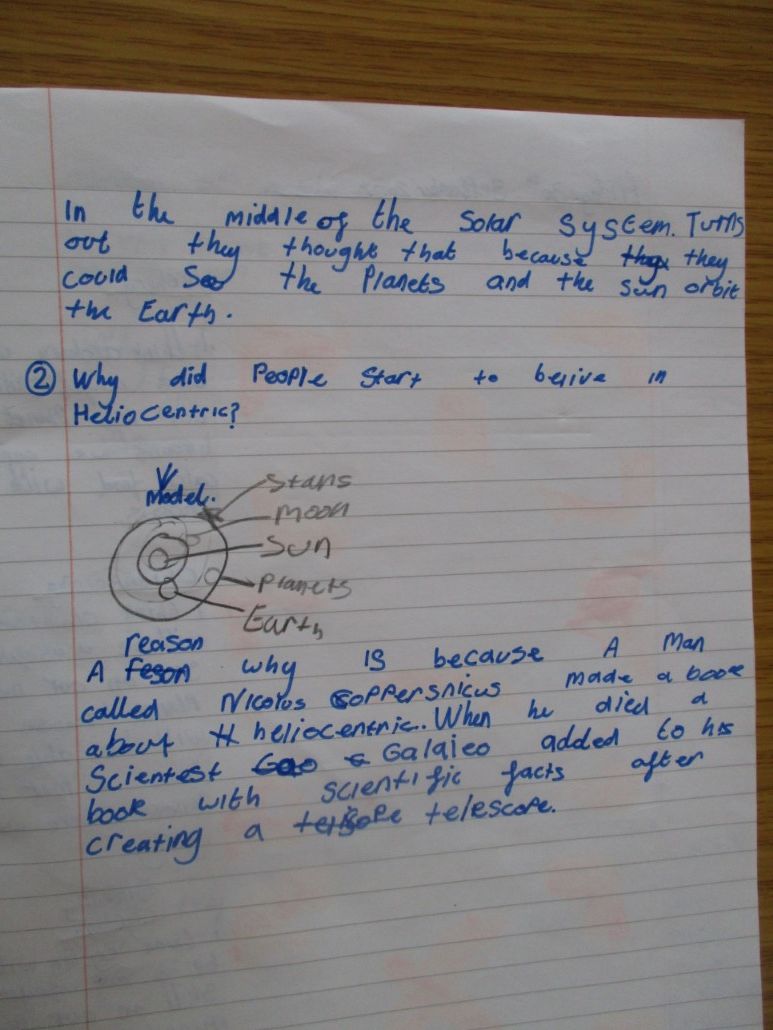 In the middle of the Solar System. Turns
out they thought that because they they
could See the Planets and the sun orbit
the Earth.
② Why did People Start to belive in
Heliocentric?
Model.
Stars
Moon
Sun
Planets
Earth
reason
A feson why IS because A Man
called Nicolus Coppersnicus made a book
about H heliocentric. When he died a
Scientest Galaieo added to his
book with scientific facts after
creating a telescope.